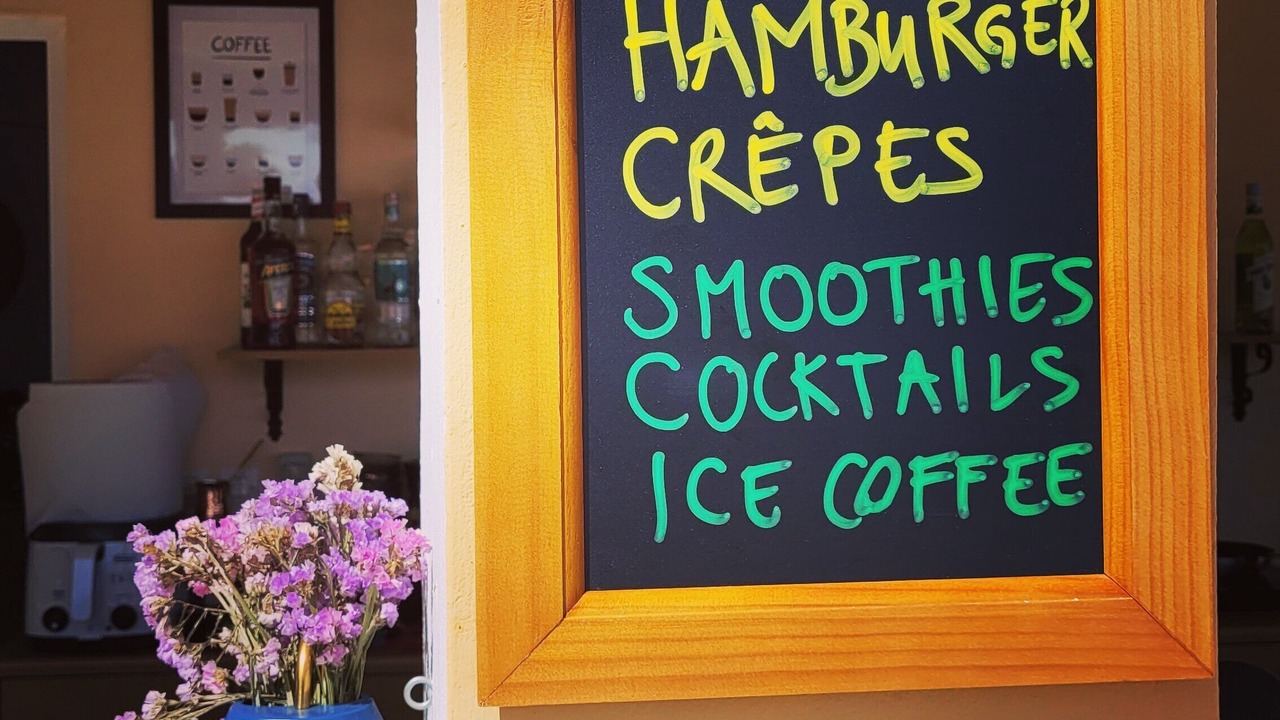 COFFEE
HAMBURGER
CRÊPES
SMOOTHIES
COCKTAILS
ICE COFFEE